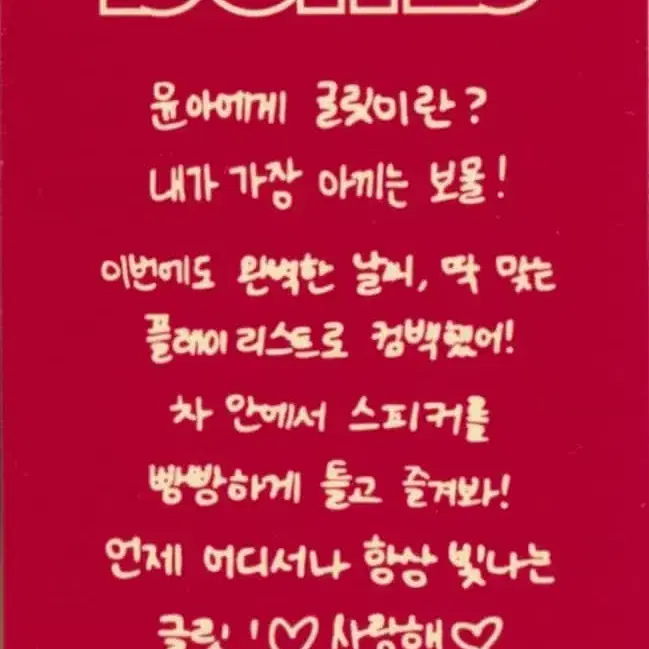 윤아에게 글릿이란?
내가 가장 아끼는 보물!
이번에도 완벽한 날씨, 딱 맞는
플레이리스트로 컴백했어!
차 안에서 스피커를
빵빵하게 틀고 즐겨봐!
언제 어디서나 항상 빛나는
글릿!♡사랑해♡